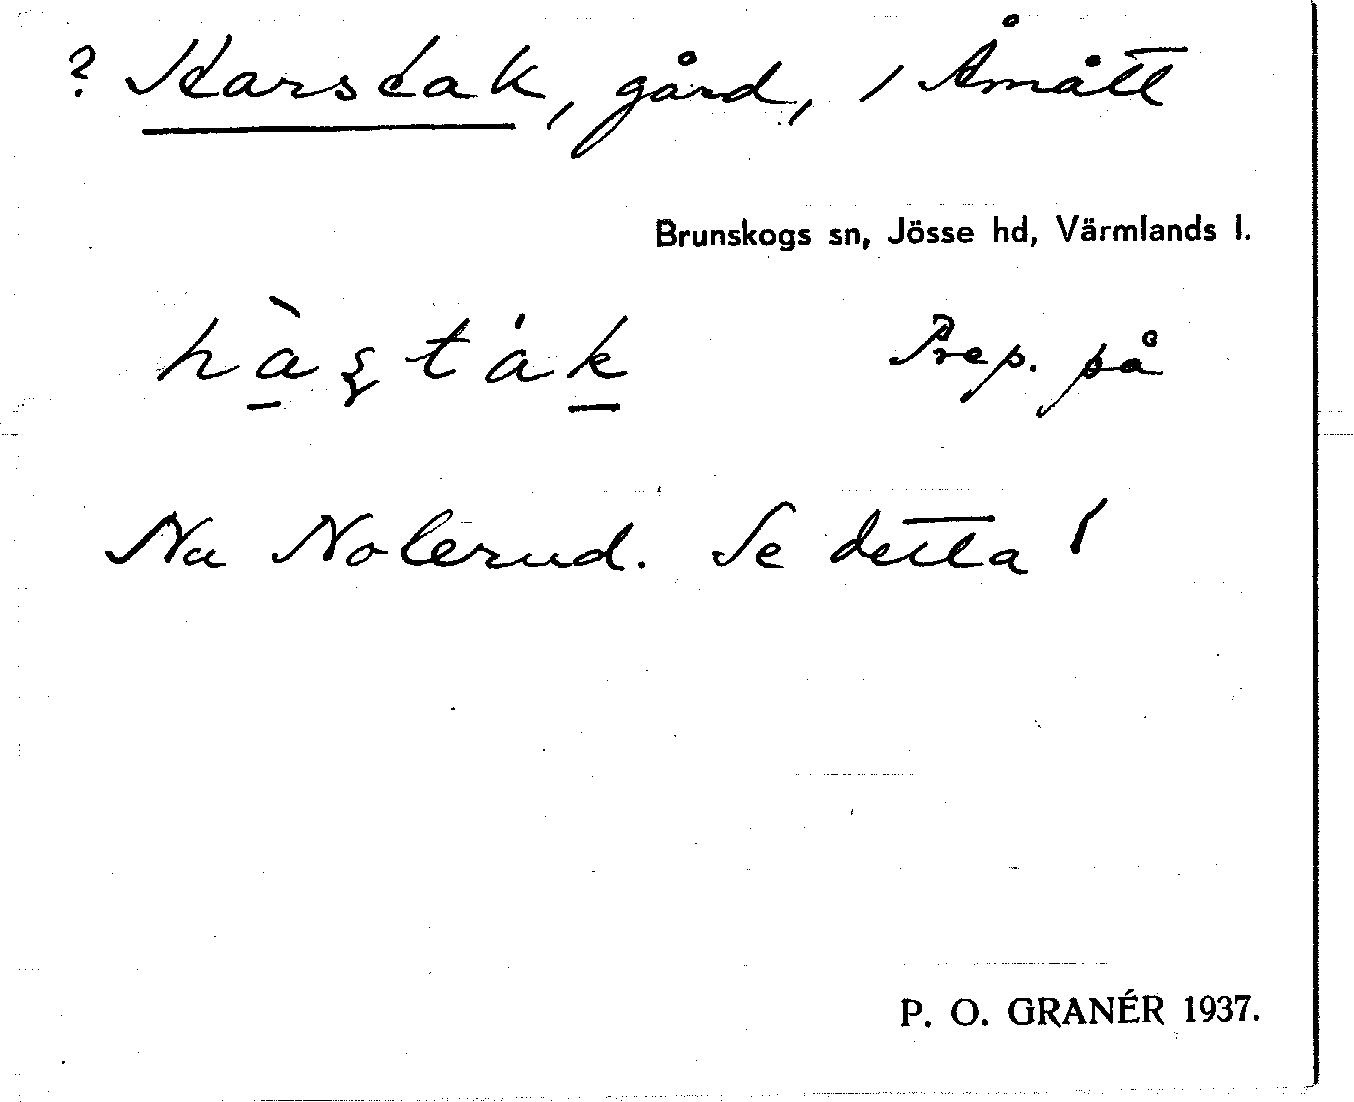 ? Harstak, gård, i Åmått
Brunskogs sn, Jösse hd, Värmlands l.
hàʂták Prep. på
Na Nolerud. Se detta!
P. O. GRANÉR 1937.